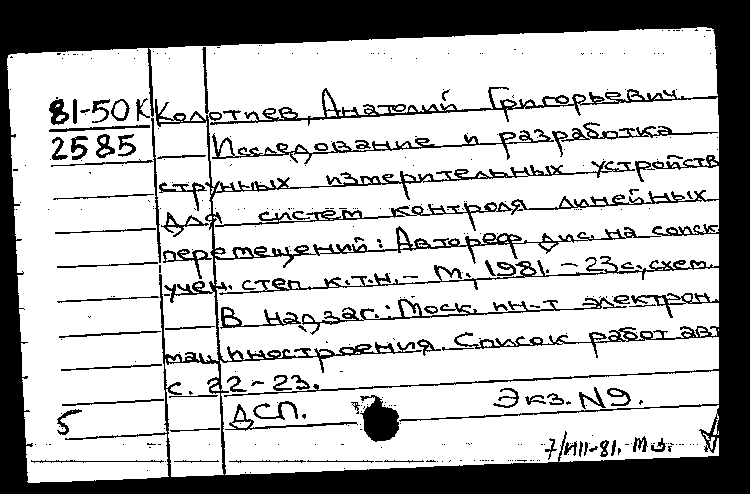 81-50К Колотиев, Анатолий Григорьевич.
2585 Исследование и разработка
струнных измерительных устройств
для систем контроля линейных
перемещений: Автореф. дис. на соиск
учен. степ. к.т.н. – М., 1981. – 23с., схем.
В надзаг.: Моск. ин-т электрон.
машиностроения. Список работ авт
с. 22-23.
5 ДСП. Экз. N9.
7/VIII-81.